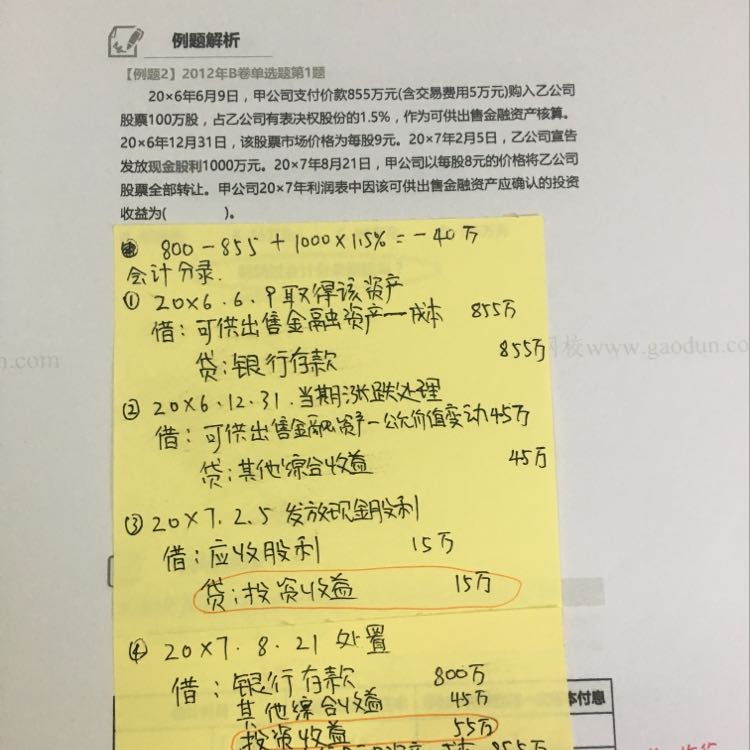 例题解析
【例题2】2012年B卷单选题第1题
20×6年6月9日，甲公司支付价款855万元(含交易费用5万元)购入乙公司
股票100万股，占乙公司有表决权股份的1.5%，作为可供出售金融资产核算。
20×6年12月31日，该股票市场价格为每股9元。20×7年2月5日，乙公司宣告
发放现金股利1000万元。20×7年8月21日，甲公司以每股8元的价格将乙公司
股票全部转让。甲公司20×7年利润表中因该可供出售金融资产应确认的投资
收益为( )。
800-855+1000×1.5%=-40万
会计分录.
① 20×6.6.9取得该资产
借：可供出售金融资产—成本 855万
贷：银行存款 855万
n.com
网校www.gaodun.com
② 20×6.12.31.当期涨跌处理
借：可供出售金融资产—公允价值变动45万
贷：其他综合收益 45万
③ 20×7.2.5 发放现金股利
借：应收股利 15万
贷：投资收益 15万
④ 20×7.8.21 处置
借：银行存款 800万
其他综合收益 45万
本付息
投资收益 55万
855万